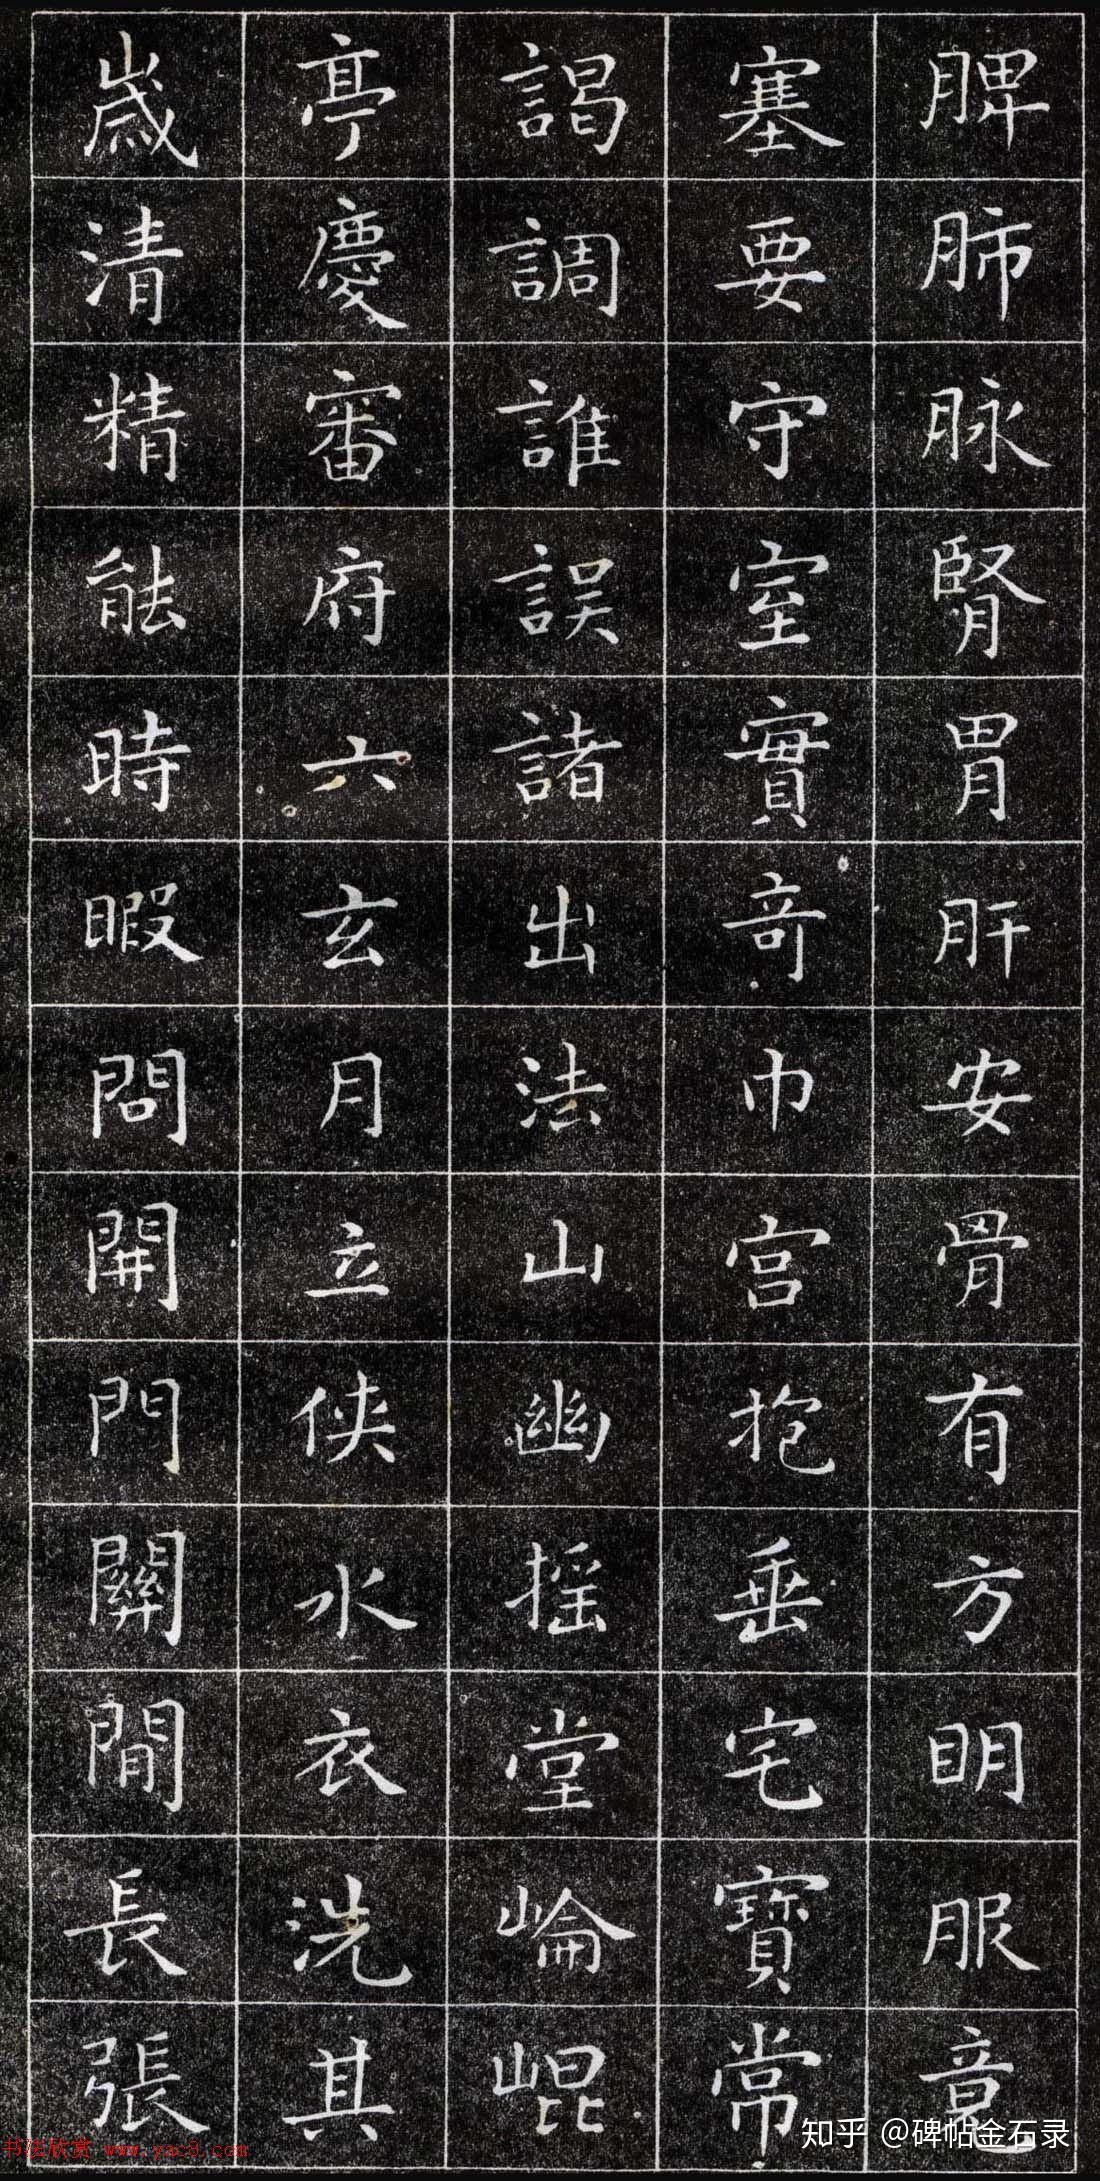 脾肺脉腎胃肝安骨有方明服章
塞要守室實奇巾宫抱垂宅寶常
謁調誰誤諸出法山幽摇堂崘崐
亭慶審府六玄月立侠水衣洗其
歲清精能時暇問開門關閒長張
知乎 @碑帖金石录
书法欣赏 www.yac8.com